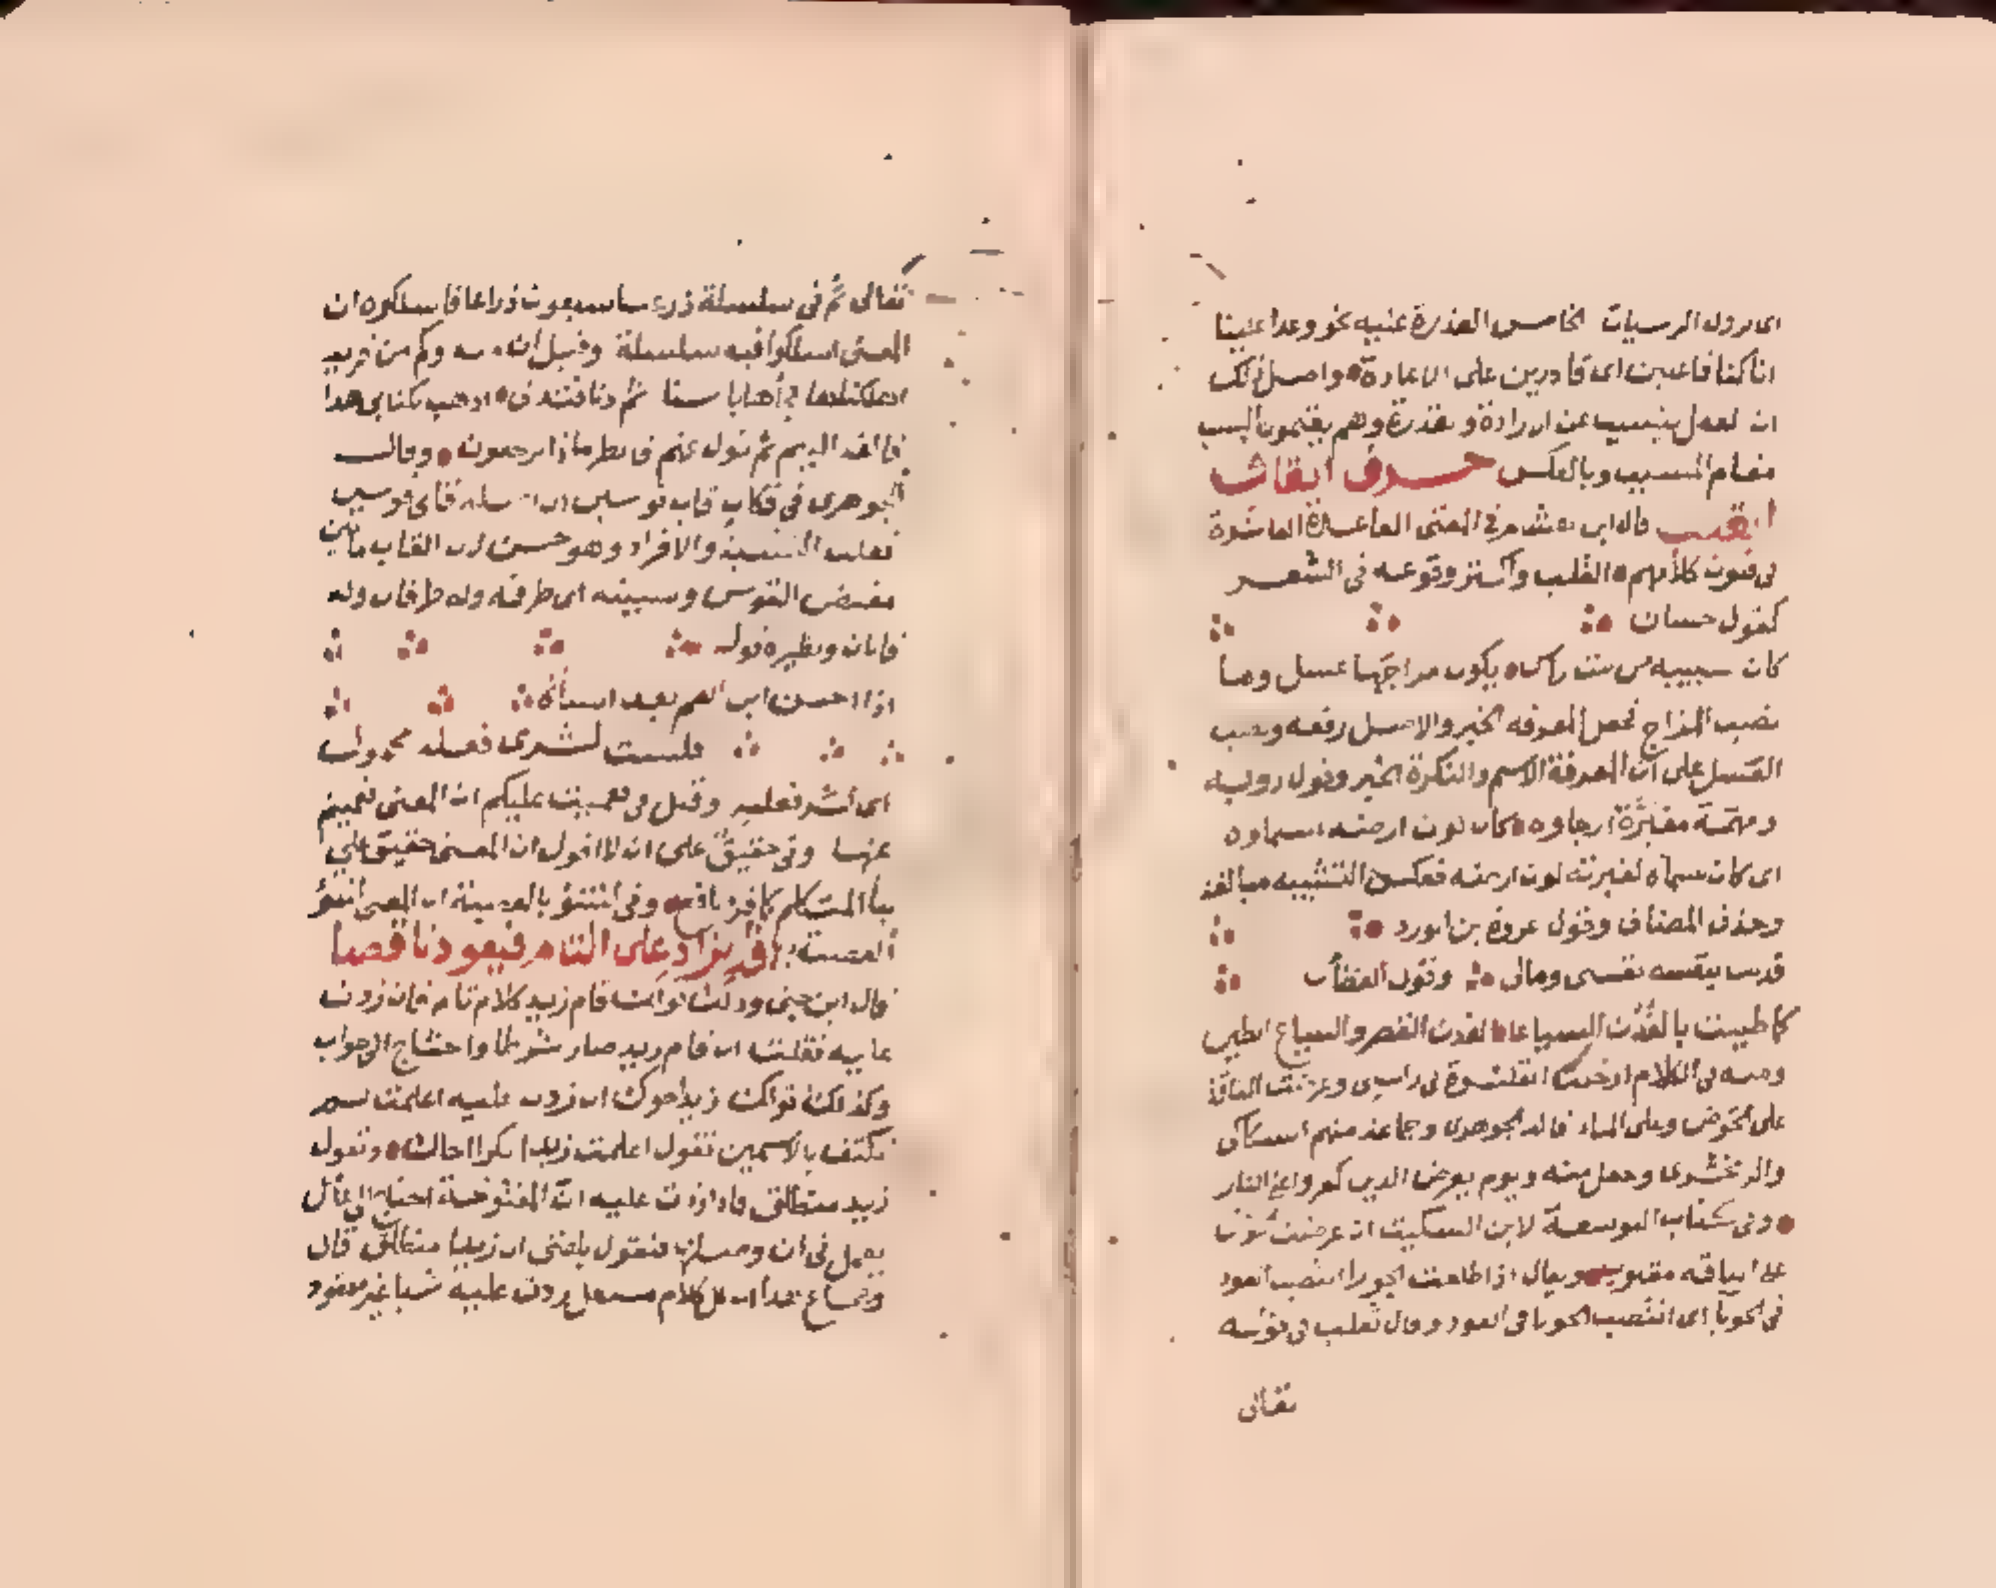 الخامس القدرة عليه نحو وعدا علينا
انا كنا فاعلين اى قادرين على الاعادة واصل ذلك
ان الفعل يتسبب عن ارادة وقدرة وهم يقيمون السبب
مقام المسبب وبالعكس حرف القاف
القلب قال ابن هشام فى المغنى القاعدة العاشرة
فى فنون كلامهم القلب وأكثر وقوعه فى الشعر
كقول حسان
كان سبيبه من بيت راس يكون مزاجها عسل وما
نصب المزاج فجعل المعرفة الخبر والاصل رفعه ونصب
العسل على ان المعرفة الاسم والنكرة الخبر وقول روبه
ومهمة مغبرة ارجاوه كان لون ارضه سماوه
اى كان سماه لغبرته لون ارضه فعكس التشبيه مبالغة
وحذف المضاف وقول عروة بن الورد
فديت بنفسه نفسى ومالى وقول القطامى
كما طينت بالفدن السياعا الفدن القصر والسياع الطين
ومنه فى الكلام ادخلت القلنسوة فى راسى وعرضت الناقة
على الحوض وعلى الماء قاله الجوهرى وجماعة منهم السكاكى
والزمخشرى وجعل منه ويوم يعرض الذين كفروا على النار
وفى كتاب التوسعة لابن السكيت ان عرضت
مقلوب ويقال اذا طلعت الجوزا انتصب العود
فى الحربا اى انتصب الحربا فى العود وقال ثعلب فى قوله
تعالى
تعالى ثم فى سلسلة ذرعها سبعون ذراعا فاسلكوه ان
المعنى اسلكوا فيه سلسلة وقيل ان منه وكم من قرية
اهلكناها فجأها باسنا ثم دنا فتدلى اذهب بكتابى هذا
فالقه اليهم ثم تول عنهم فانظر ماذا يرجعون وقال
الجوهرى فى فكان قاب قوسين ان اصله قابى قوس
فقلب التثنية والافراد وهو حسن لان القاب ما بين
مقبض القوس وسيته اى طرفه وله طرفان وله
قابان ونظيره قوله
اذا احسن ابن العم بعد اساءة
فلست لشرى فعله بحمول
اى لشر فعليه وقيل فى فعميت عليكم ان المعنى فعميتم
عنها وفى حقيق على ان لا اقول ان المعنى حقيق على
بيا المتكلم كما قرا نافع وفى لتنوؤ بالعصبة ان المعنى لتنوؤ
العصبة بها قد يزاد على التام فيعود ناقصا
قال ابن جنى وذلك قولك قام زيد كلام تام فان زدت
عليه فقلت ان قام زيد صار شرطا واحتاج الى جواب
وكذلك قولك زيد اخوك ان زدت عليه اعلمت لم
تكتف بالاسمين تقول اعلمت زيدا بكرا اخاك وتقول
زيد منطلق فاذا زدت عليه ان المفتوحة احتاج الى عامل
يعمل فى ان وصلتها فتقول بلغنى ان زيدا منطلق قال
وجماع هذا ان كل كلام مستقل زدت عليه شيا غير معقود